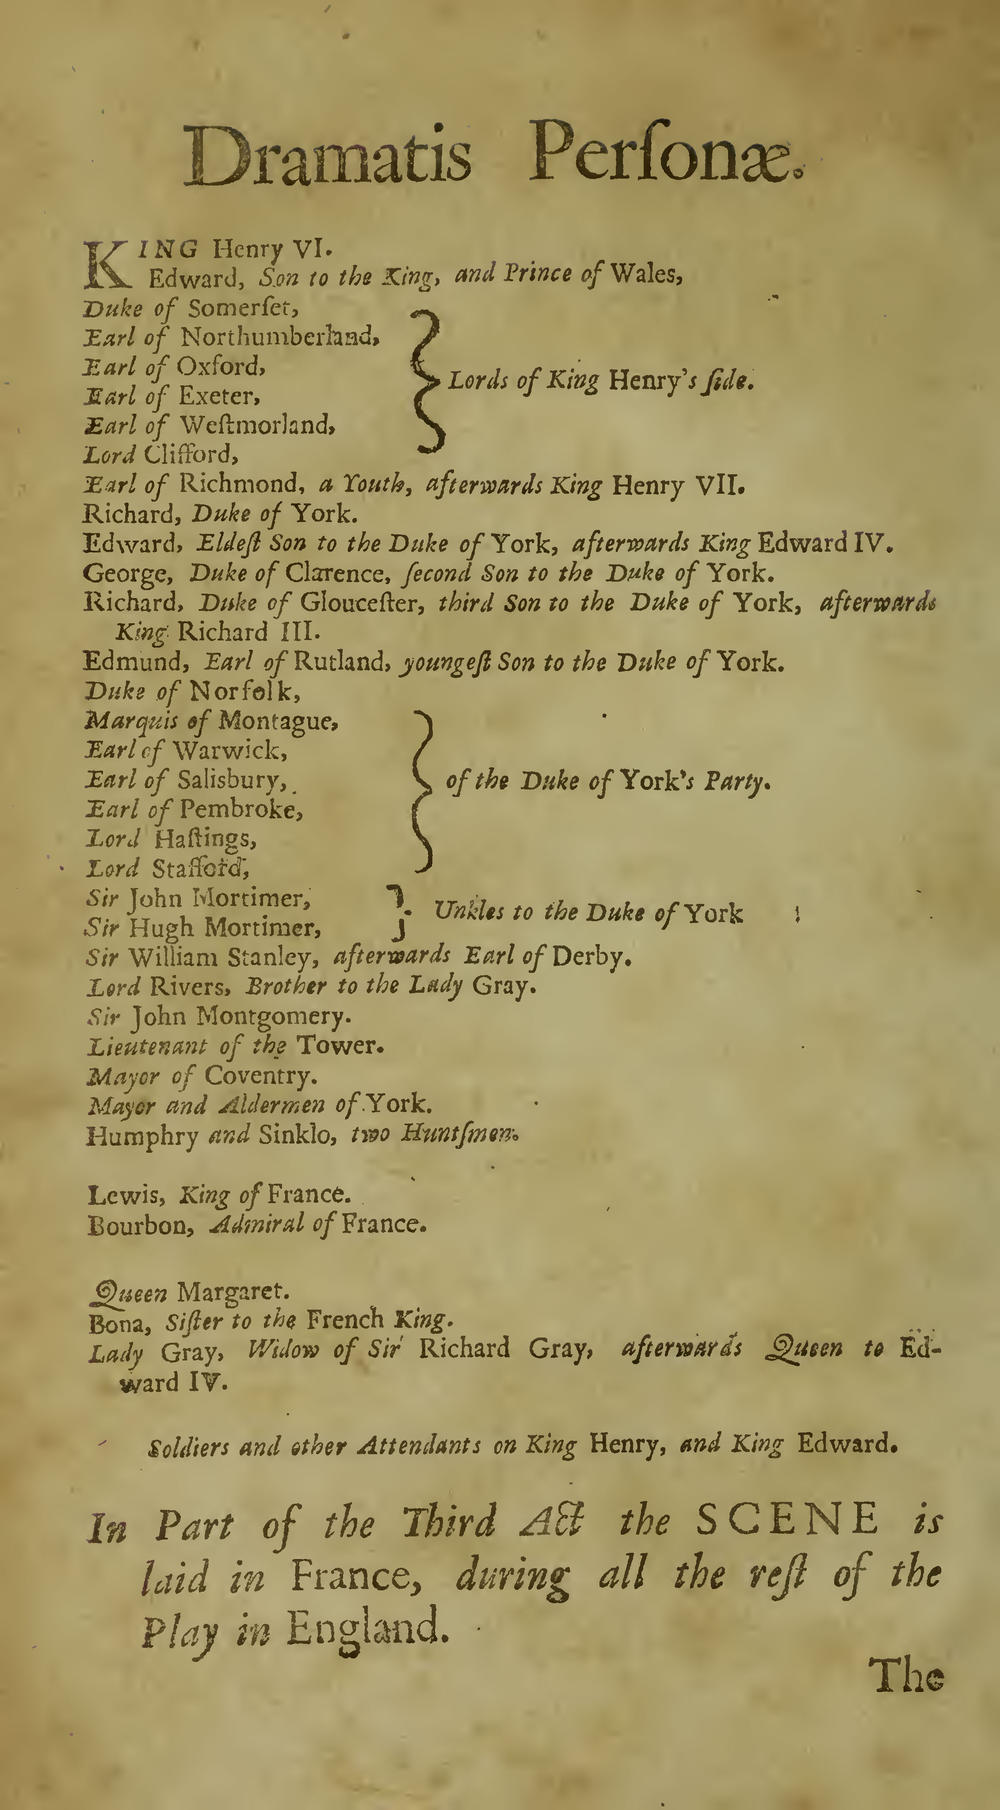 Dramatis Perſonæ.
KING Henry VI.
Edward, Son to the King, and Prince of Wales,
Duke of Somerſet,
Earl of Northumberland,
Earl of Oxford,
Earl of Exeter,
Earl of Weſtmorland,
Lord Clifford,
Lords of King Henry's ſide.
Earl of Richmond, a Youth, afterwards King Henry VII.
Richard, Duke of York.
Edward, Eldeſt Son to the Duke of York, afterwards King Edward IV.
George, Duke of Clarence, ſecond Son to the Duke of York.
Richard, Duke of Glouceſter, third Son to the Duke of York, afterwards
King Richard III.
Edmund, Earl of Rutland, youngeſt Son to the Duke of York.
Duke of Norfolk,
Marquis of Montague,
Earl of Warwick,
Earl of Salisbury,
Earl of Pembroke,
Lord Haſtings,
Lord Stafford,
of the Duke of York's Party.
Sir John Mortimer,
Sir Hugh Mortimer,
Unkles to the Duke of York
Sir William Stanley, afterwards Earl of Derby.
Lord Rivers, Brother to the Lady Gray.
Sir John Montgomery.
Lieutenant of the Tower.
Mayor of Coventry.
Mayor and Aldermen of York.
Humphry and Sinklo, two Huntſmen.
Lewis, King of France.
Bourbon, Admiral of France.
Queen Margaret.
Bona, Siſter to the French King.
Lady Gray, Widow of Sir Richard Gray, afterwards Queen to Ed-
ward IV.
Soldiers and other Attendants on King Henry, and King Edward.
In Part of the Third Act the SCENE is
laid in France, during all the reſt of the
Play in England.
The